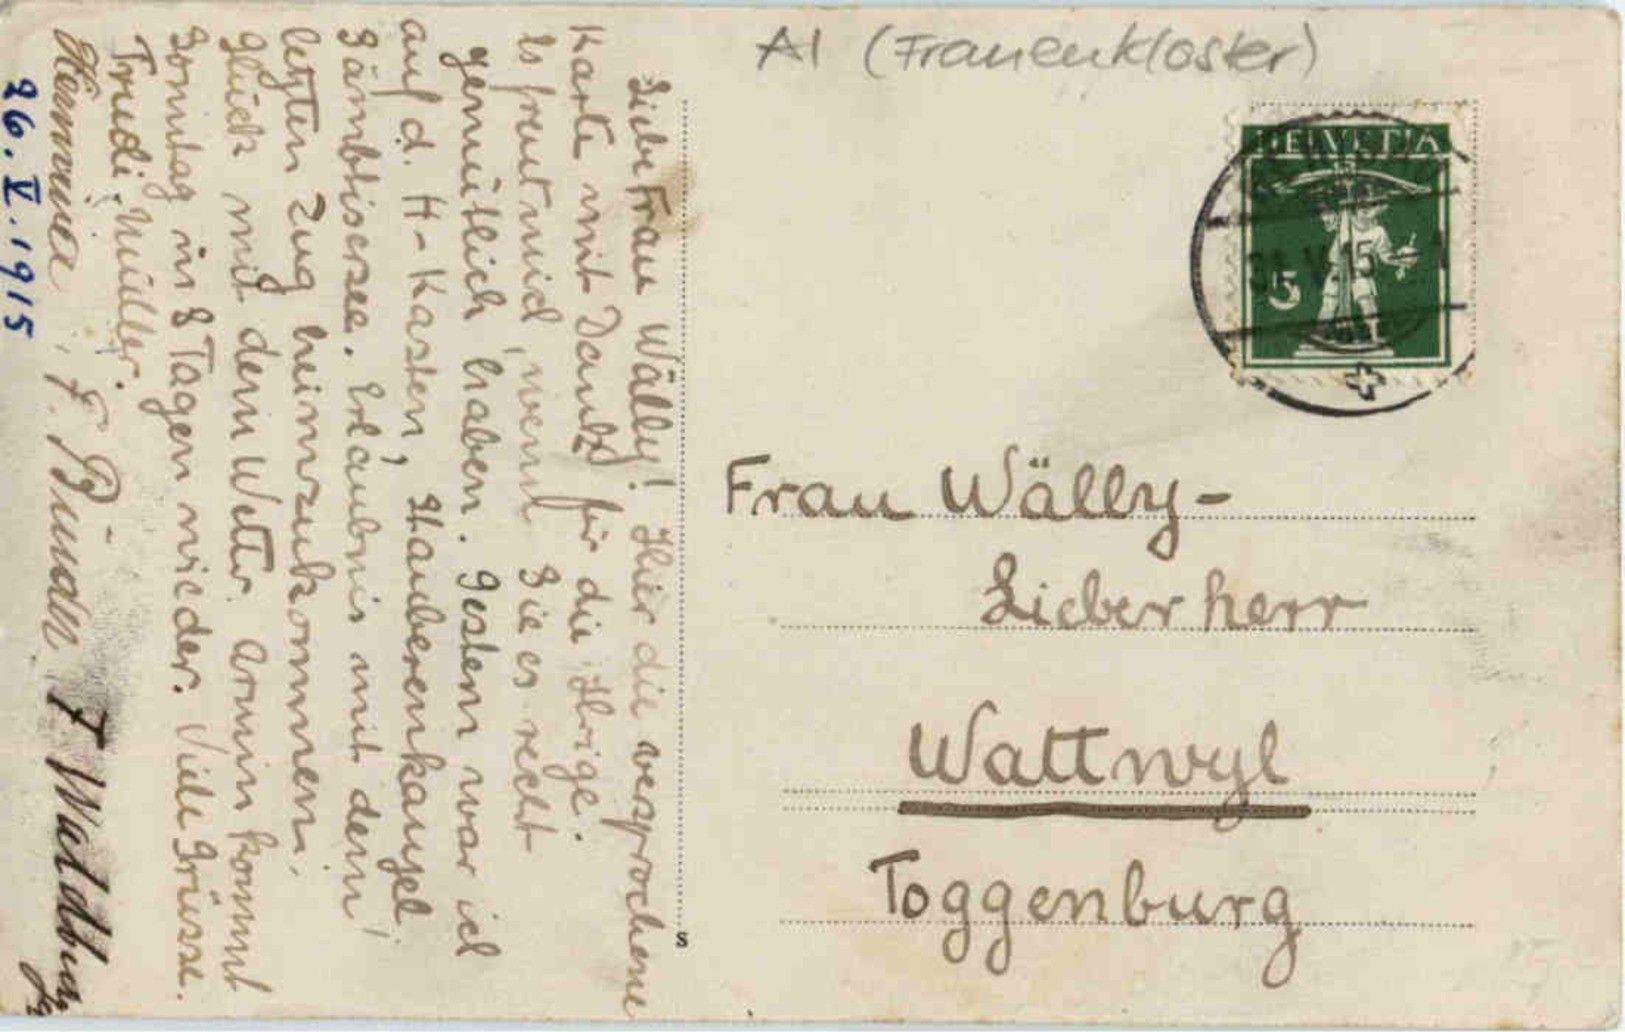 AI (Frauenkloster)
HELVETIA
5
Liebe Frau Wälly! Hier die versprochene
Karte mit Dank für die Ihrige.
Es freut mich, wenn Sie es recht
gemütlich haben. Gestern war ich
auf d. H-Kasten, Staubernkanzel
Sämbtisersee. Erlaubnis mit dem
letzten Zug heimzukommen.
Glück mit dem Wetter. Armin kommt
Sonntag in 8 Tagen wieder. Viele Grüsse.
Trudi Müller.
Hermine, F.
26. V. 1915
Frau Wälly-
Lieberherr
Wattwyl
Toggenburg
s